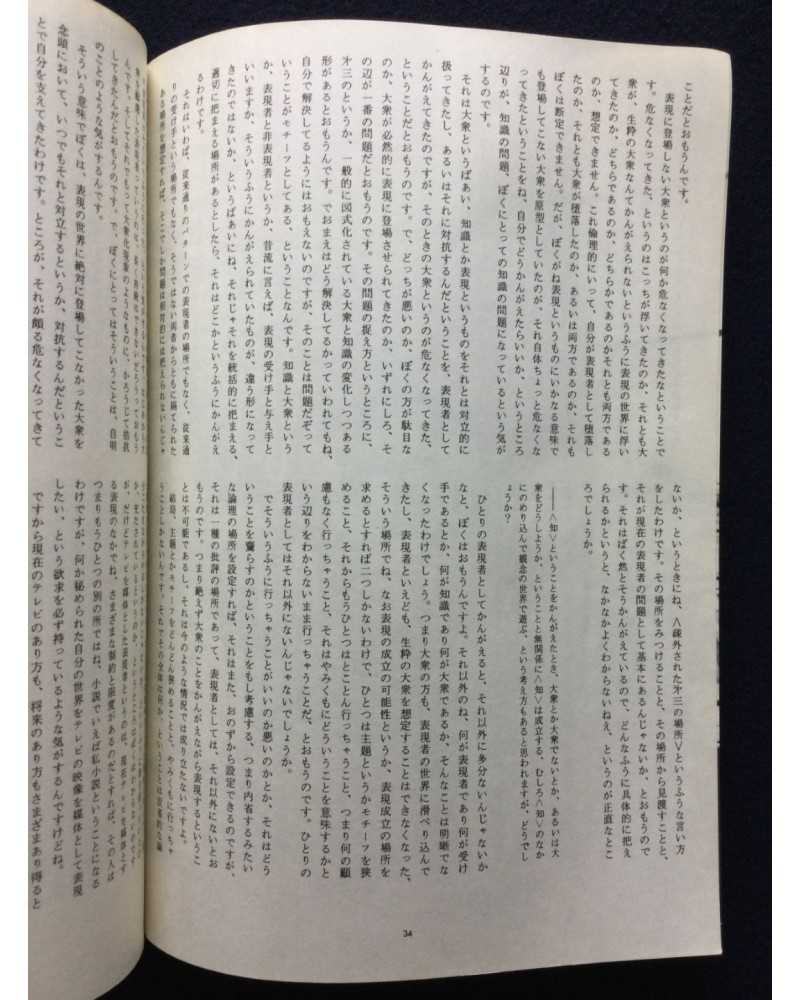 ことだとおもうんです。
表現に登場しない大衆というのが何か危なくなってきたなということで
す。危なくなってきた、というのはこっちが浮いてきたのか、それとも大
衆が、生粋の大衆なんてかんがえられないというふうに表現の世界に浮い
てきたのか、どちらであるのか、どちらかであるのかそれとも両方である
のか、想定できません。これ倫理的にいって、自分が表現者として堕落し
たのか、それとも大衆が堕落したのか、あるいは両方であるのか、それも
ぼくは断定できません。だが、ぼくがね表現というものにいかなる意味で
も登場してこない大衆を原型としていたのが、それ自体ちょっと危なくな
ってきたということをね、自分でどうかんがえたらいいか、というところ
辺りが、知識の問題、ぼくにとっての知識の問題になっているという気が
するのです。
それは大衆というばあい、知識とか表現というものをそれとは対立的に
扱ってきたし、あるいはそれに対抗するんだということを、表現者として
かんがえてきたのですが、そのときの大衆というのが危なくなってきた、
ということだとおもうのです。で、どっちが悪いのか、ぼくの方が駄目な
のか、大衆が必然的に表現に登場させられてきたのか、いずれにしろ、そ
の辺が一番の問題だとおもうのです。その問題の捉え方というところに、
㐧三のというか、一般的に図式化されている大衆と知識の変化しつつある
形があるとおもうんです。でおまえはどう解決してるかっていわれてもね、
自分で解決してるようにはおもえないのですが、そのことは問題だぞって
いうことがモチーフとしてある、ということなんです。知識と大衆という
か、表現者と非表現者というか、昔流に言えば、表現の受け手と与え手と
いいますか、そういうふうにかんがえられていたものが、違う形になって
きたのではないか、というばあいにね、それじゃそれを統括的に把まえる、
適切に把まえる場所があるとしたら、それはどこかというふうにかんがえ
るわけです。
それはいわば、従来通りのパターンでの表現者の場所でもなく、従来通
りの受け手という場所でもなく、そうではない両者からともに隔てられた
ある場所を想定すれば、そこでしか問題は明瞭的には把えられないんじゃ
ないか、というときにね、〈疎外された㐧三の場所〉というふうな言い方
をしたわけです。その場所をみつけることと、その場所から見渡すことと、
それが現在の表現者の問題として基本にあるんじゃないか、とおもうので
す。それはばく然とそうかんがえているので、どんなふうに具体的に把え
られるかというと、なかなかよくわからないねえ、というのが正直なとこ
ろでしょうか。
――〈知〉ということをかんがえたとき、大衆とか大衆でないとか、あるいは大
衆をどうしようか、ということと無関係に〈知〉は成立する、むしろ〈知〉のなか
にのめり込んで観念の世界で遊ぶ、という考え方もあると思われますが、どうでし
ょうか？
ひとりの表現者としてかんがえると、それ以外に多分ないんじゃないか
なと、ぼくはおもうんですよ。それ以外のね、何が表現者であり何が受け
手であるとか、何が知識であり何が大衆であるか、そんなことは明晰でな
くなったわけでしょう。つまり大衆の方も、表現者の世界に滑べり込んで
きたし、表現者といえども、生粋の大衆を想定することはできなくなった、
そういう場所でね、なお表現の成立の可能性というか、表現成立の場所を
求めるとすれば二つしかないわけで、ひとつは主題というかモチーフを狭
めること、それからもうひとつはとことん行っちゃうこと、つまり何の顧
慮もなく行っちゃうこと、それはやみくもにどういうことを意味するかと
いう辺りをわからないまま行っちゃうことだ、とおもうのです。ひとりの
表現者としてはそれ以外にないんじゃないでしょうか。
でそういうふうに行っちゃうことがいいのか悪いのかとか、それはどう
いうことを齎らすのかということをもし考慮する、つまり内省するみたい
な論理の場所を設定すれば、それはまた、おのずから設定できるのですが、
それは一種の批評の場所であって、表現者としては、それ以外にないとお
もうのです。つまり絶えず大衆のことをかんがえながら表現するというこ
とは不可能であるし、それは今のような情況では成り立たないですよ。
結局、主題とかモチーフをどんどん狭めることと、やみくもに行っちゃ
うことしかないんです。
34
してきたんだとおもうんです。で、ぼくにとってはそういうことは、自明
のことのような気がするんです。
そういう意味でぼくは、表現の世界に絶対に登場してこなかった大衆を
念頭において、いつもそれと対立するというか、対抗するんだというこ
とで自分を支えてきたわけです。ところが、それが頗る危なくなってきて
る表現のなかでね、さまざまな制約と限度があるのだとすれば、その人は
つまりもうひとつの別の所ではね、小説でいえば私小説ということになる
わけですが、何か秘められた自分の世界をテレビの映像を媒体として表現
したい、という欲求を必ず持っているような気がするんですけどね。
ですから現在のテレビのあり方も、将来のあり方もさまざまあり得ると